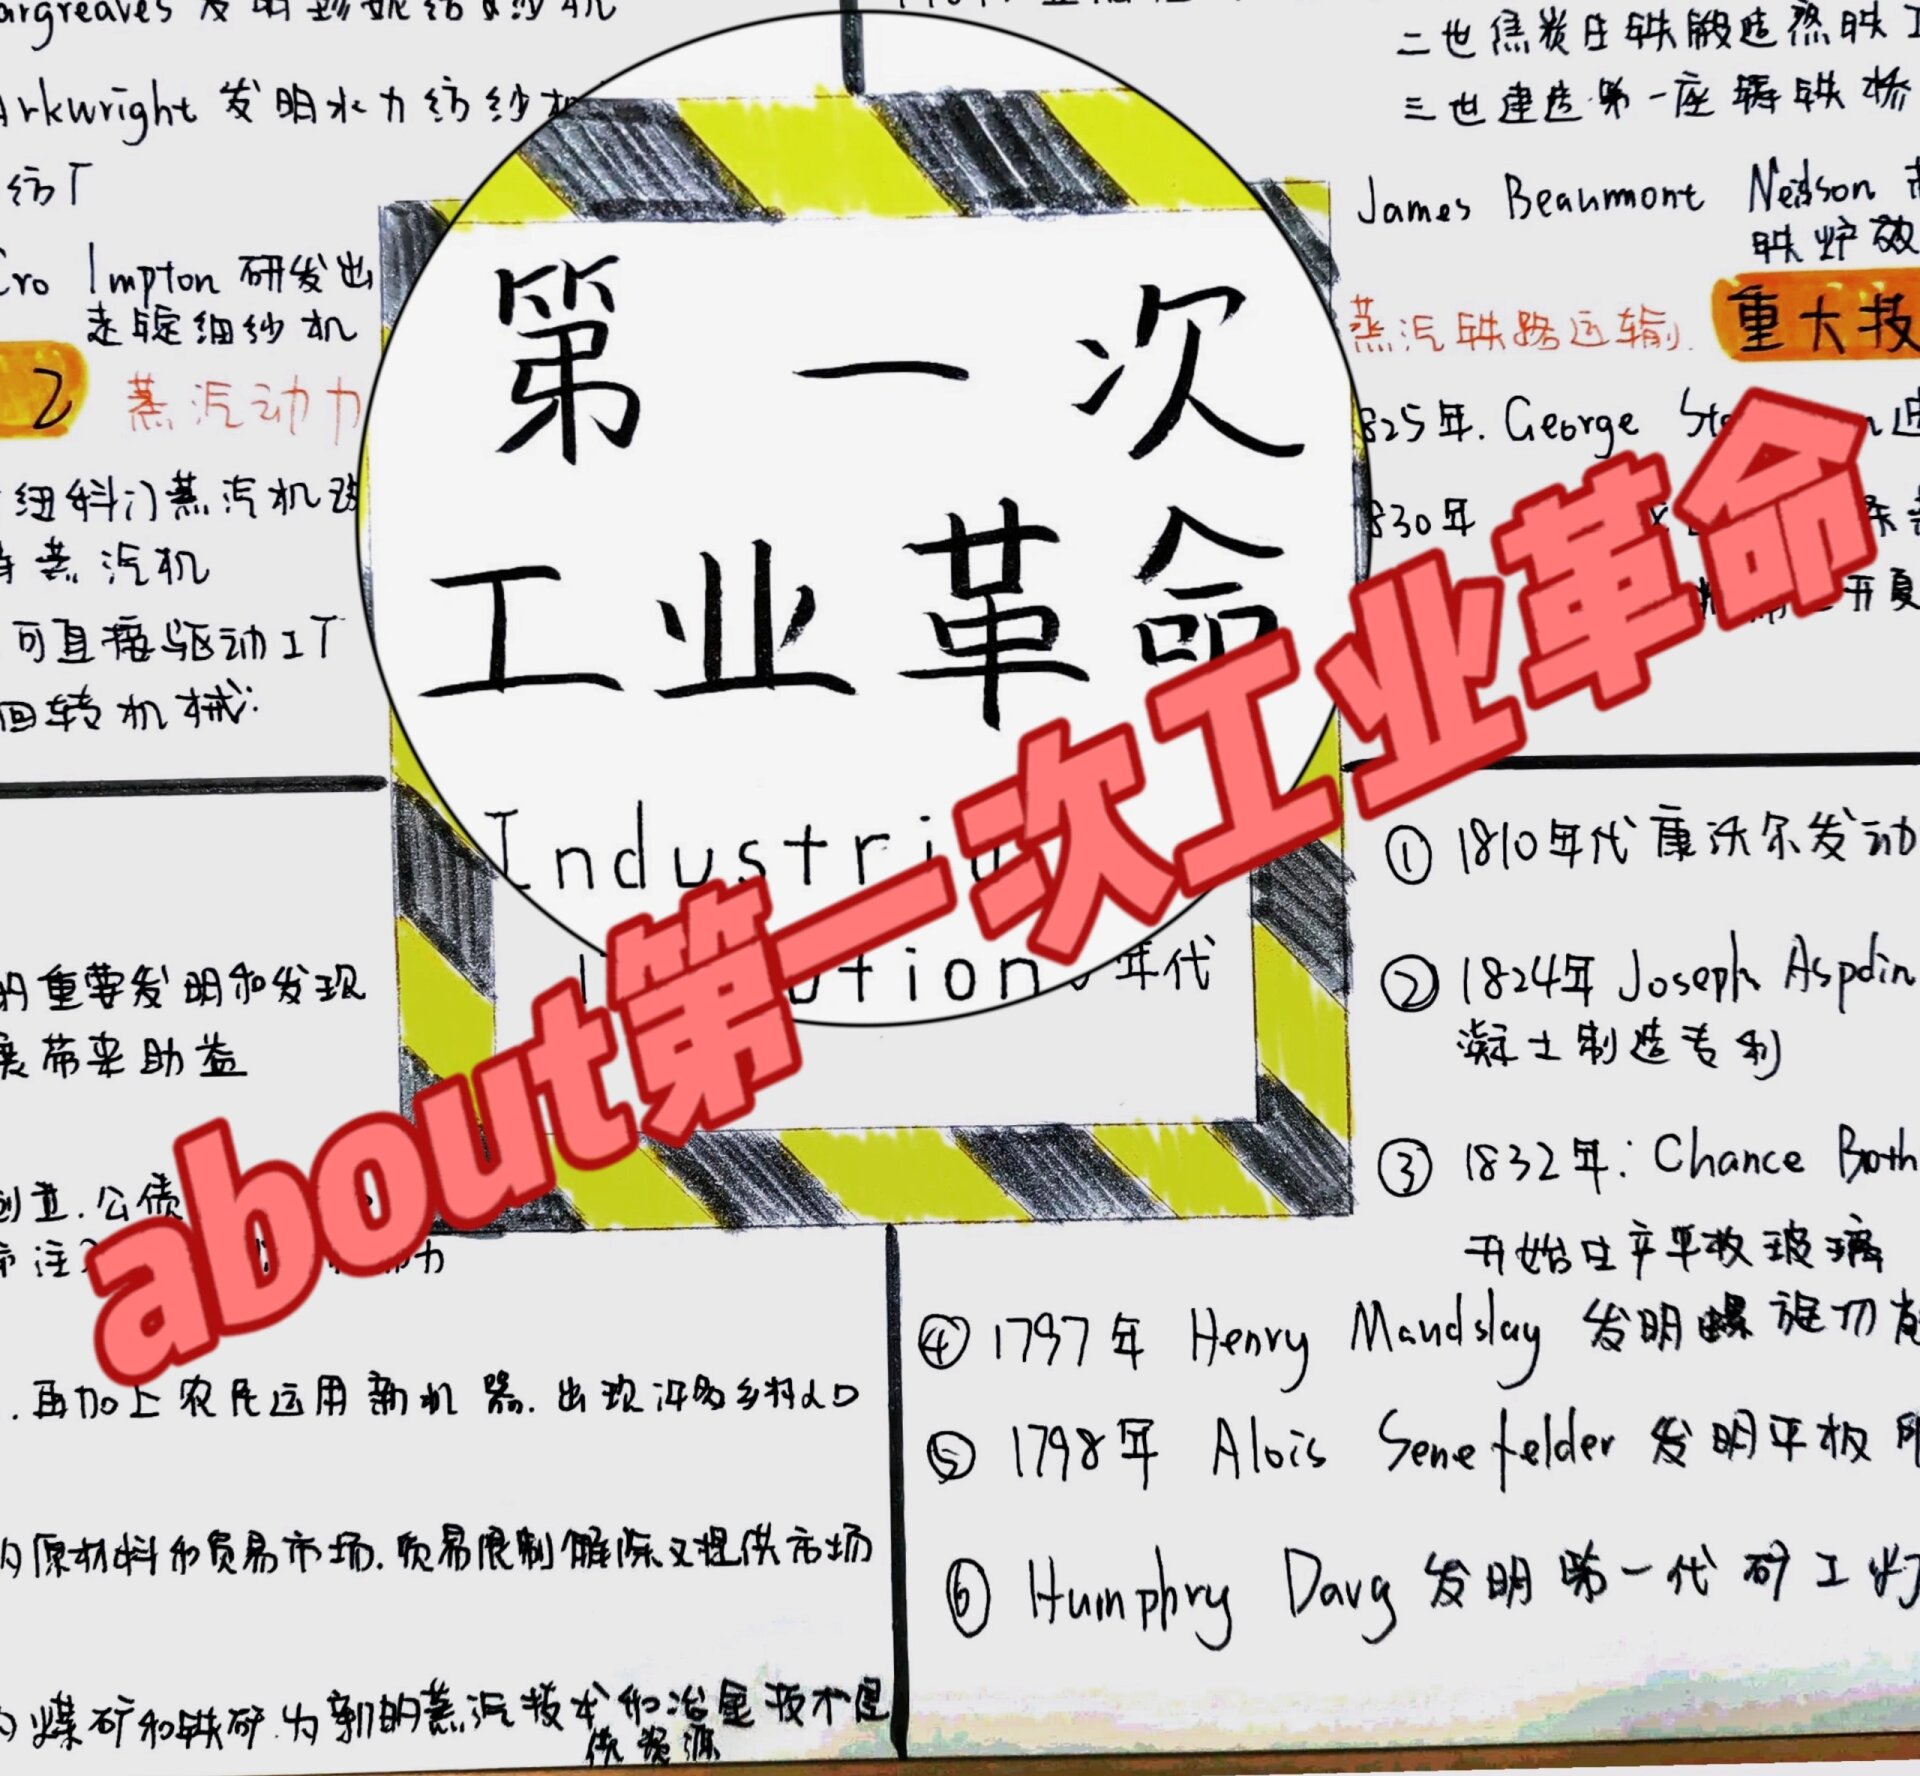 发明珍妮纺纱机
Arkwright 发明水力纺纱机
纺厂
Cro Impton 研发出
走锭细纱机
2 蒸汽动力
纽科门蒸汽机
蒸汽机
可直接驱动工厂
回转机械
重要发明和发现
带来助益
创业.公债
再加上农民运用新机器.出现许多乡村人口
原材料和贸易市场.贸易限制解除又提供市场
煤矿和铁矿.为新的蒸汽技术和冶金技术提
供资源
第一次
工业革命
Industria
ution
年代
about第一次工业革命
二世焦炭生铁锻造熟铁工
三世建造第一座铸铁桥
James Beaumont Neidson
铁炉效
蒸汽铁路运输 重大技
825年. George Ste
830年
① 1810年代康沃尔发动
② 1824年 Joseph Aspdin
凝土制造专利
③ 1832年: Chance Both
开始生产平板玻璃
④ 1797年 Henry Maudslay 发明螺旋切
⑤ 1798年 Alois Senefelder 发明平板
⑥ Humphry Davy 发明第一代矿工灯